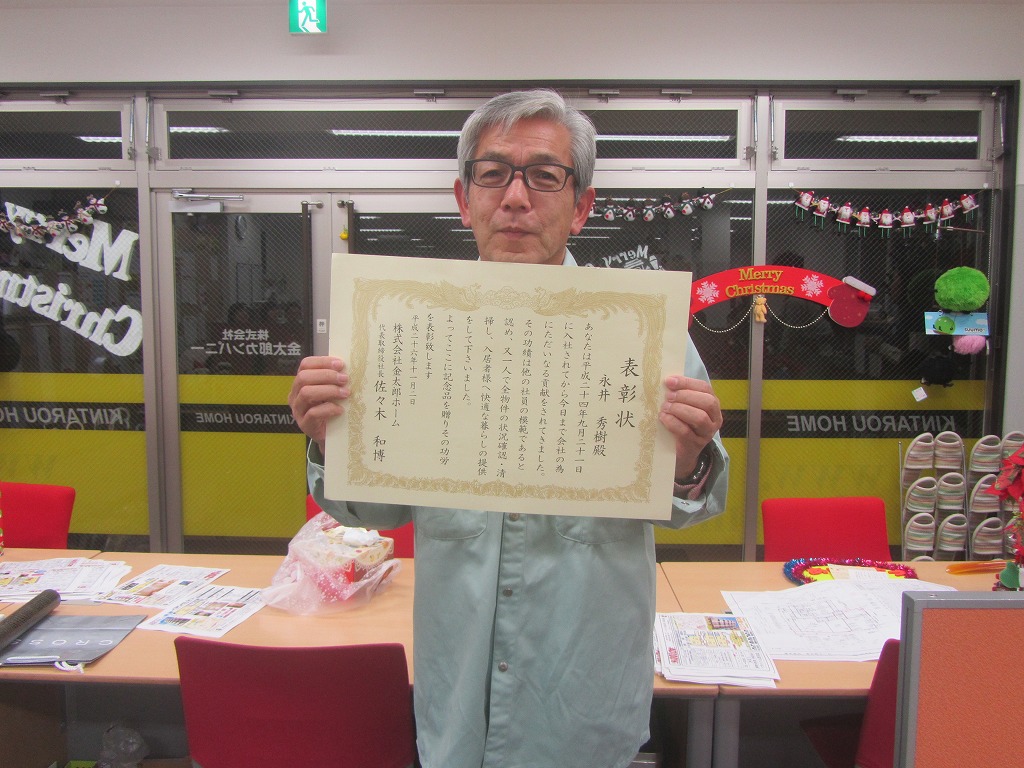 表彰状
永井 秀樹殿
あなたは平成二十四年九月二十一日
に入社されてから今日まで会社の為
にただいなる貢献をされてきました。
その功績は他の社員の模範であると
認め、又一人で全物件の状況確認・清
掃し、入居者様へ快適な暮らしの提供
をして下さいました。
よってここに記念品を贈りその功労
を表彰致します
平成二十六年十一月二日
株式会社金太郎ホーム
代表取締役社長 佐々木 和博
Merry
Christmas
Merry
Christmas
Merry
株式会社
金太郎カンパニー
KINTAROU HOME
KINTAROU HOME
KINTAROU HOME
suumo